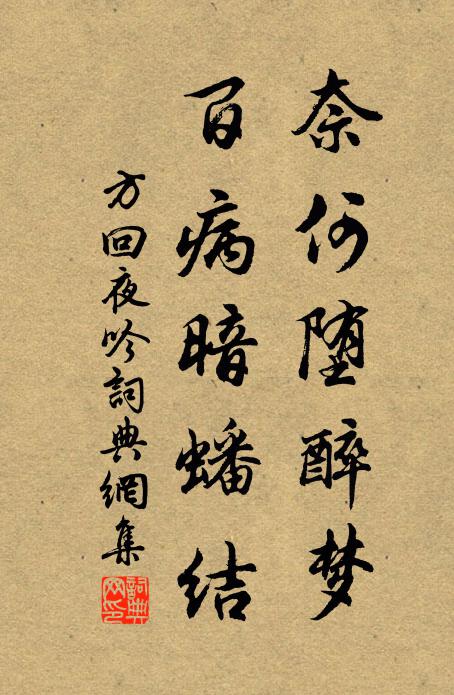 奈何堕醉梦
百病暗蟠结
方回夜吟詞典網集
詞典網印